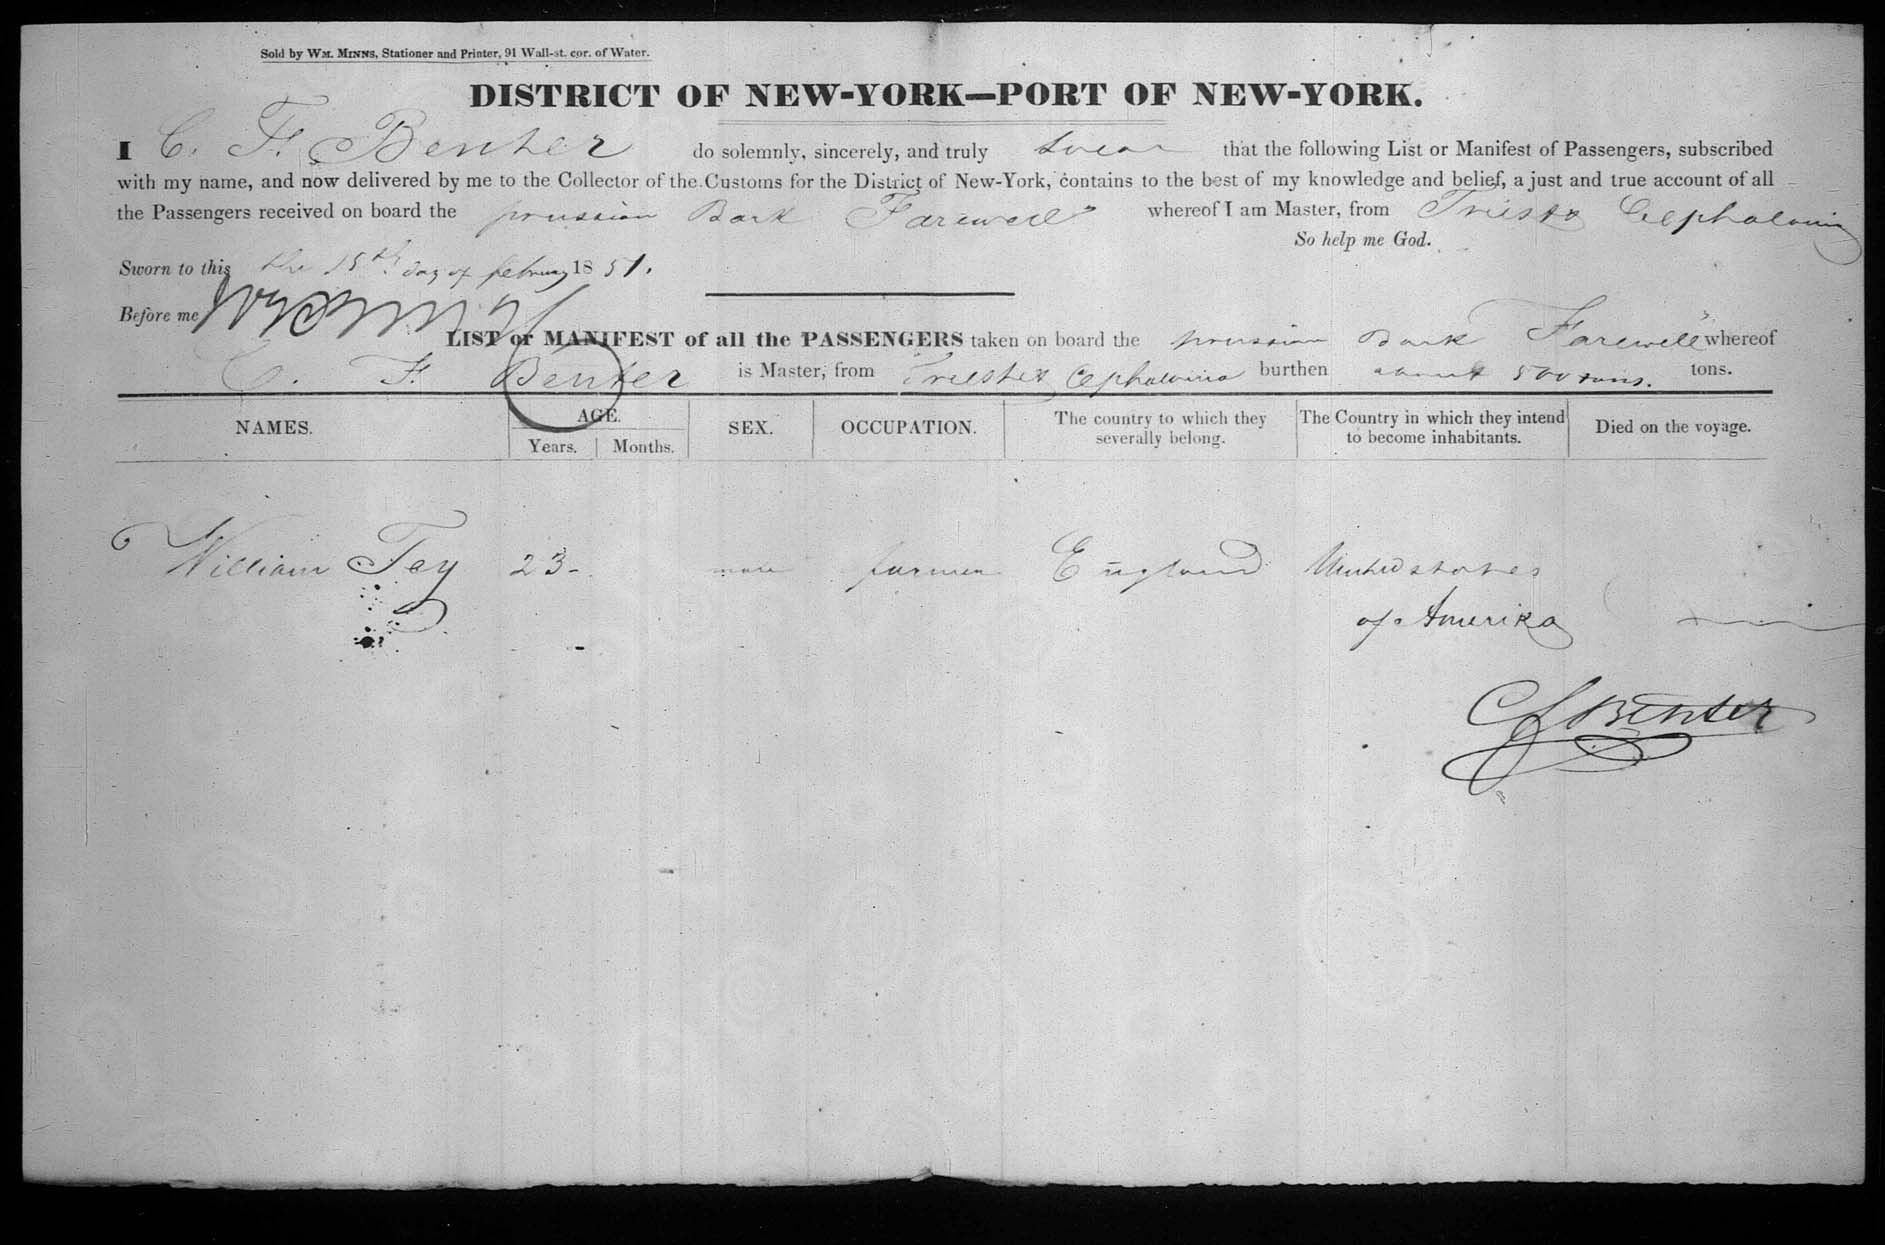 Sold by WM. MINNS, Stationer and Printer, 91 Wall-st. cor. of Water.
DISTRICT OF NEW-YORK—PORT OF NEW-YORK.
I C. F. Benter do solemnly, sincerely, and truly swear that the following List or Manifest of Passengers, subscribed
with my name, and now delivered by me to the Collector of the Customs for the District of New-York, contains to the best of my knowledge and belief, a just and true account of all
the Passengers received on board the prussian Bark Farewell" whereof I am Master, from Trieste Cephalonia
So help me God.
Sworn to this the 15th day of february 1851.
Before me
LIST or MANIFEST of all the PASSENGERS taken on board the prussian Bark Farewell" whereof
C. F. Benter is Master, from Trieste Cephalonia burthen about 500 tons. tons.
NAMES. AGE. SEX. OCCUPATION. The country to which they severally belong. The Country in which they intend to become inhabitants. Died on the voyage.
Years. Months.
William Fey 23- male farmer England United states
of Amerika
CF Benter